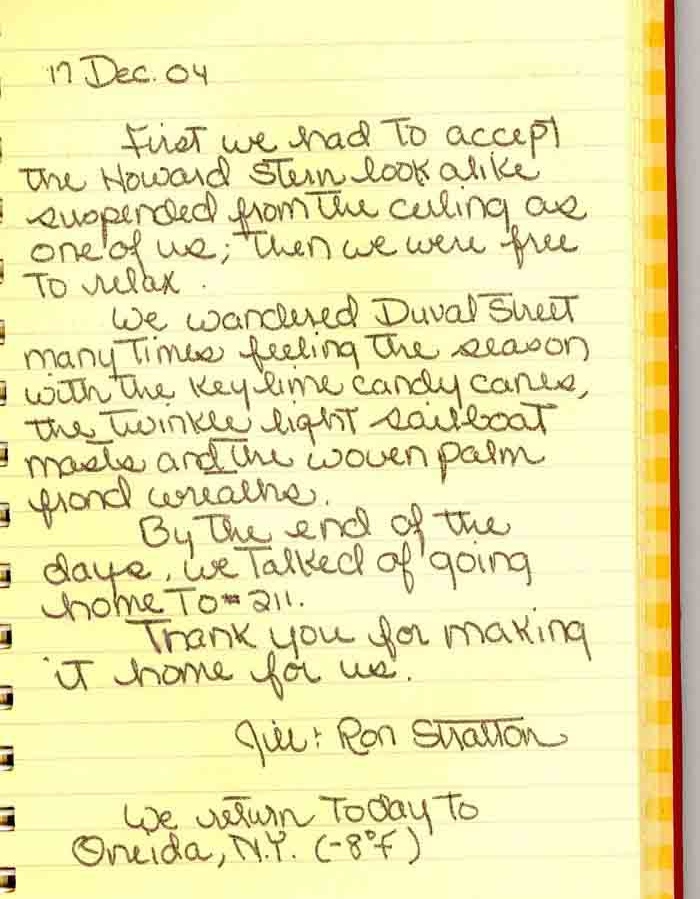 17 Dec. 04
First we had to accept
the Howard Stern look alike
suspended from the ceiling as
one of us; then we were free
to relax.
We wandered Duval Street
many times feeling the season
with the key lime candy canes,
the twinkle light sailboat
masts and the woven palm
frond wreaths.
By the end of the
days, we talked of going
home to #211.
Thank you for making
it home for us.
Jill + Ron Stratton
We return today to
Oneida, N.Y. (-8°F)